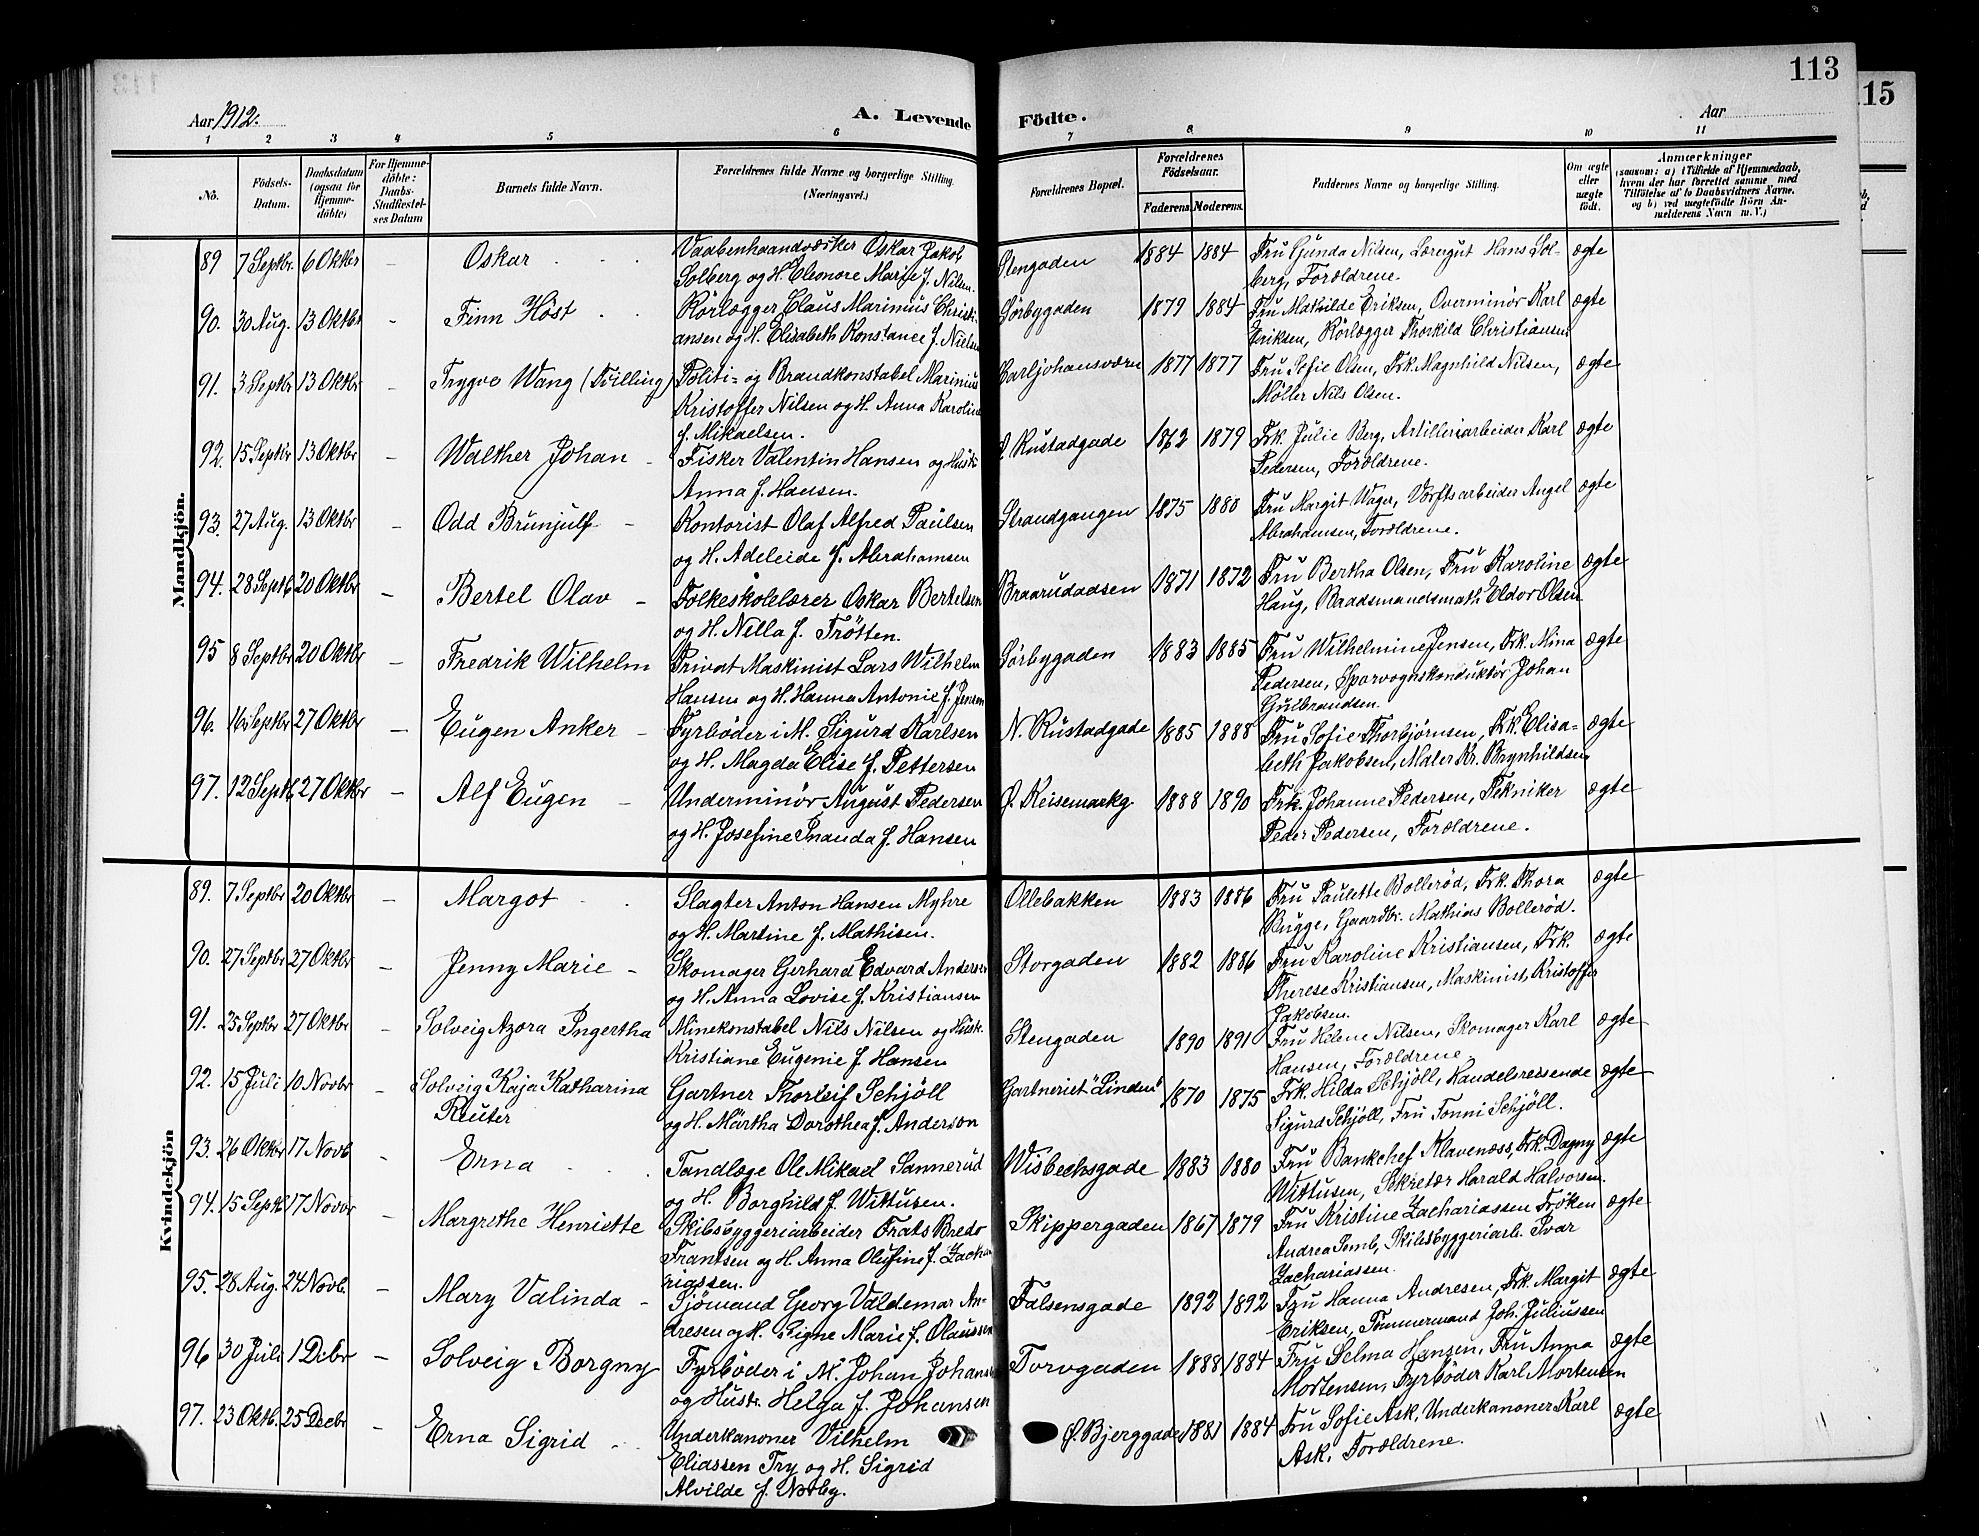 113
115
Aar 1912.
A. Levende
Födte.
Aar
1 2 3 4 5 6 7 8 9 10 11
No.
Födsels-
Datum.
Daabsdatum
(ogsaa for
Hjemme-
döbte)
For Hjemme-
döbte:
Daabs-
Stadfæstel-
ses Datum
Barnets fulde Navn.
Forældrenes fulde Navne og borgerlige Stilling.
(Næringsvei.)
Forældrenes Bopæl.
Forældrenes
Födselsaar.
Faderens.
Moderens.
Faddernes Navne og borgerlige Stilling.
Om ægte
eller
uægte
födt.
Anmærkninger
(saasom: a) i Tilfælde af Hjemmedaab,
hvem der har forrettet samme med
Tilföielse af to Daabsvidners Navne,
og b) ved uegtefödte Börn An-
melderens Navn m. V.)
Mandkjön.
89 7 Septbr. 6 Oktbr - Oskar Vaabenhaandværker Oskar Jakob Stengaden 1884 1884 Fru Gunda Nilsen, Læregut Hans Sol- ægte
Solberg og H. Eleonore Marie f. Nilsen. berg, Forældrene.
90. 30 Aug. 13 Oktbr - Finn Höst Rörlægger Claus Marinius Christi- Sørbygaden 1879 1884 Fru Mathilde Eriksen, Overminör Karl ægte
ansen og H. Elisabeth Konstance f. Nielsen Eriksen, Rörlægger Thorkild Christiansen
91. 3 Septbr 13 Oktbr - Trygve Wang (Tvilling) Politi= og Brandkonstabel Marinius Carljohansværn 1877 1877 Fru Sofie Olsen, Frk. Magnhild Nilsen, ægte
Kristoffer Nilsen og H. Anna Karoline Møller Nils Olsen.
f. Mikaelsen.
92. 15 Septbr 13 Oktbr - Walther Johan - Fisker Valentin Hansen og Hustr. Rustadgade 1862 1879 Frk. Julie Berg, Artilleriarbeider Karl ægte
Anna f. Hansen. Pedersen, Forældrene.
93. 27 Aug. 13 Oktbr - Odd Brunjulf - Kontorist Olaf Alfred Paulsen Strandgangen 1875 1880 Fru Margit Wager, Værftsarbeider Angel ægte
og H. Adeleide f. Abrahamsen Abrahamsen, Forældrene.
94. 28 Septb 20 Oktbr - Bertel Olav - Folkeskolelærer Oskar Bertelsen Braarudaasen 1871 1872 Fru Bertha Olsen, Fru Karoline ægte
og H. Nella f. Trötten. Haug, Baadsmandsmath Eldor Olsen
95 8 Septbr 20 Oktbr - Fredrik Wilhelm Privat Maskinist Lars Wilhelm Sørbygaden 1883 1885 Fru Wilhelmine Jensen, Frk. Mina ægte
Hansen og H. Hanna Antonie f. Jensen Pedersen, Sporvognskonduktør Johan
Gulbrandsen.
96. 16 Septbr 27 Oktbr - Eugen Anker - Fyrbøder i M. Sigurd Karlsen N. Rustadgade 1885 1888 Fru Sofie Thorbjørnsen, Frk. Elisa- ægte
og H. Magda Elise f. Pettersen beth Jakobsen, Maler Kr. Brynhildsen
97. 12 Septb 27 Oktbr - Alf Eugen - Underminör August Pedersen Ø. Keisemarkg. 1888 1890 Frk. Johanne Pedersen, Tekniker ægte
og H. Josefine Inanda f. Hansen Peder Pedersen, Forældrene.
Kvindekjön
89. 7 Septbr 20 Oktbr - Margot Slagter Anton Hansen Myhre Ollebakken 1883 1886 Fru Paulette Bollerød, Frk. Thora ægte
og H. Martine f. Mathisen. Bugge, Gaardbr. Mathias Bollerød.
90. 27 Septbr 27 Oktbr - Jenny Marie - Skomager Gerhard Edvard Andersen Storgaden 1882 1886 Fru Karoline Kristiansen, Frk. ægte
og H. Anna Lovise f. Kristiansen Therese Kristiansen, Maskinist, Kristoffer
Jakobsen.
91. 25 Septbr 27 Oktbr - Solveig Azora Ingertha Minekonstabel Nils Nilsen og Hustr. Stengaden 1890 1891 Fru Helene Nilsen, Skomager Karl ægte
Kristiane Eugenie f. Hansen Hansen, Forældrene
92. 15 Juli 10 Novbr - Solveig Kaja Katharina Gartner Thorleif Schjöll Gartneriet "Linden" 1870 1875 Frk. Hilda Schjöll, Handelsreisende ægte
Reuter og H. Märtha Dorothea f. Anderson Sigurd Schjöll, Fru Tonni Schjöll.
93. 26 Oktbr 17 Novb - Erna Tandlæge Ole Mikael Sannerud Wisbechsgade 1883 1880 Fru Bankchef Klavenæss, Frk. Dagny ægte
og H. Borghild f. Wittusen. Wittusen, Sekretær Harald Halvorsen.
94. 15 Septb 17 Novbr - Margrethe Henriette Skibsbyggeriarbeider Frats Bredo Skippergaden 1867 1879 Fru Kristine Zachariassen Frøken ægte
Frantsen og H. Anna Olufine f. Zacha Andrea Semb, Skibsbyggeriarb. Ivar
riassen. Zachariassen.
95. 28 Aug. 24 Novb. - Mary Valinda - Sjömand Georg Valdemar An- Falsensgade 1892 1892 Fru Hanna Andresen, Frk. Margit ægte
dresen og H. Signe Marie f. Olaussen Eriksen, Tømmermand Joh. Juliussen
96 30 Juli 1 Debr - Solveig Borgny Fyrbøder i M. Johan Johansen Torvgaden 1888 1884 Fru Selma Hansen, Fru Anna ægte
og Hustr. Helga f. Johansen Mortensen, Fyrbøder Karl Mortensen
97. 23 Oktb. 25 Decbr - Erna Sigrid Underkanoner Vilhelm Ø. Bjerggade 1881 1884 Fru Sofie Ask, Underkanoner Karl ægte
Eliassen Try og H. Sigrid Ask, Forældrene.
Alvilde f. Norby.